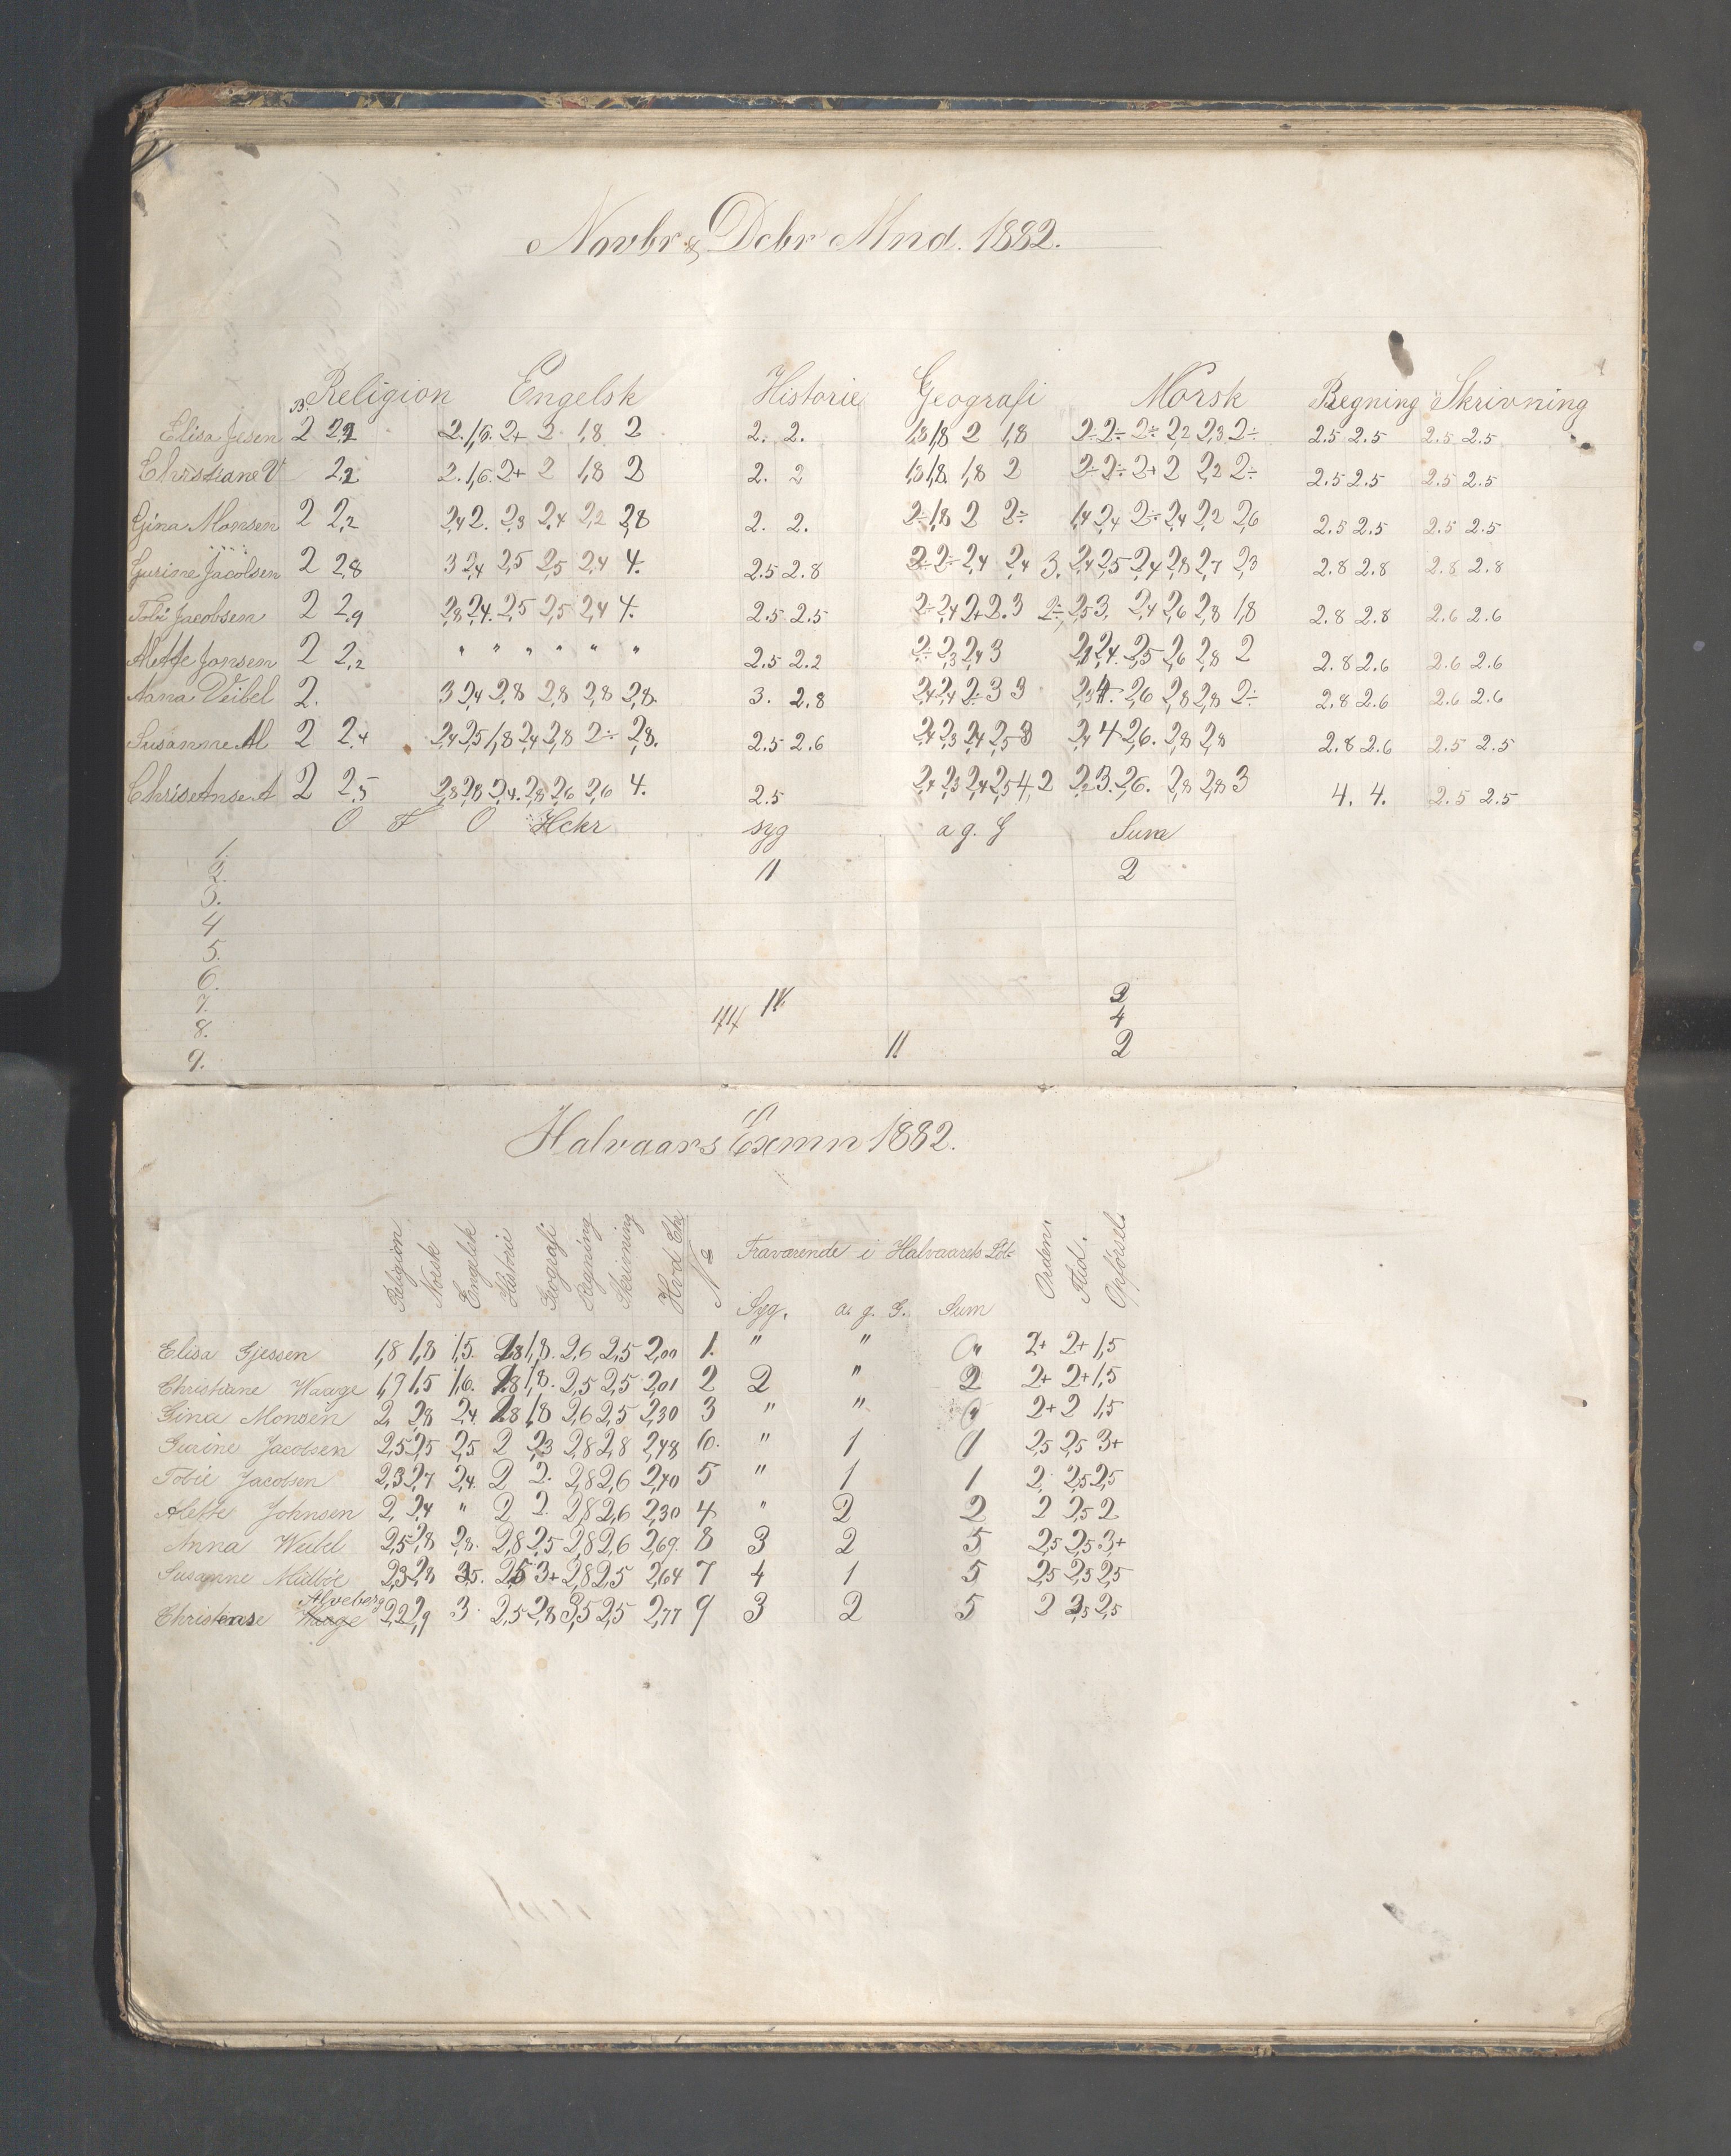 Novbr & Dcbr Mnd. 1882.
B. Religion Engelsk Historie Geografi Norsk Regning Skrivning
Elisa Jesen 2 2,2 2. 1,6. 2+ 2 1,8 2 2. 2. 1,8 1,8 2 1,8 2÷ 2÷ 2÷ 2,2 2,3 2÷ 2.5 2.5 2.5 2.5
Christiane V 2,2 2. 1,6. 2+ 2 1,8 2 2. 2 1,8 1,8. 1,8 2 2÷ 2÷ 2+ 2 2,2 2÷ 2.5 2.5 2.5 2.5
Gina Monsen 2 2,2 2,4 2. 2,3 2,4 2,2 2,8 2. 2. 2÷ 1,8 2 2÷ 1,4 2,4 2÷ 2,4 2,2 2,6 2.5 2.5 2.5 2.5
Gurine Jacobsen 2 2,8 3 2,4 2,5 2,5 2,4 4. 2.5 2.8 2÷ 2÷ 2,4 2,4 3. 2,4 2,5 2,4 2,8 2,7 2,3 2.8 2.8 2.8 2.8
Tobi Jacobsen 2 2,9 2,8 2,4. 2,5 2,5 2,4 4. 2.5 2.5 2÷ 2,4 2+ 2. 3 2÷ 2,5 3. 2,4 2,6 2,8 1,8 2.8 2.8 2.6 2.6
Alette Jonsen 2 2,2 " " " " " " 2.5 2.2 2÷ 2,3 2,4 3 2,1 2,4. 2,5 2,6 2,8 2 2.8 2.6 2.6 2.6
Anna Veibel 2. 3 2,4 2,8 2,8 2,8 2,8. 3. 2.8 2,4 2,4 2÷ 3 3 2,3 4. 2,6 2,8 2,8 2÷ 2.8 2.6 2.6 2.6
Susanne M 2 2,4 2,4 2,5 1,8 2,4 2,8 2÷ 2,8. 2.5 2.6 2,4 2,3 2,4 2,5 3 2,4 4 2,6. 2,8 2,8 2.8 2.6 2.5 2.5
Christense A 2 2,5 2,8 2,8 2,4. 2,8 2,6 2,6 4. 2.5 2,4 2,3 2,4 2,5 4,2 2,2 3. 2,6. 2,8 2,8 3 4. 4. 2.5 2.5
O F O Hckr syg a g. G Suma
1.
2. 11 2
3.
4
5.
6.
7. 3
8. 4
9. 11 2
Halvaars Exmn 1882.
Religion Norsk Engelsk Historie Geografi Regning Skrivning Hvd Ctr No Fraværende i Halvaarets Løb Orden Flid. Opførsel.
Syg. a. g. G. Sum
Elisa Gjessen 1,8 1,8 1,5. 1,8 1,8. 2,6 2,5 2,00 1. " " " 2+ 2+ 1,5
Christiane Waage 1,9 1,5 1,6. 1,8 1,8. 2,5 2,5 2,01 2 2 " 2 2+ 2+ 1,5
Gina Monsen 2, 2,8 2,4. 1,8 1,8 2,6 2,5 2,30 3 " " 2+ 2 1,5
Gurine Jacobsen 2,5 2,5 2,5 2 2,3 2,8 2,8 2,48 6. " 1 1 2,5 2,5 3+
Tobie Jacobsen 2,3 2,7 2,4. 2 2. 2,8 2,6 2,40 5 " 1 1 2. 2,5 2,5
Alette Johnsen 2, 2,4 " 2 2. 2,8 2,6 2,30 4 " 2 2 2 2,5 2
Anna Weibel 2,5 2,8 2,8. 2,8 2,5 2,8 2,6 2,69. 8 3 2 5 2,5 2,5 3+
Susanne 2,3 2,8 3,5. 2,5 3+ 2,8 2,5 2,64 7 4 1 5 2,5 2,5 2,5
Alveberg
Christense 2,2 2,9 3. 2,5 2,8 3,5 2,5 2,77 9 3 2 5 2 2,5 2,5